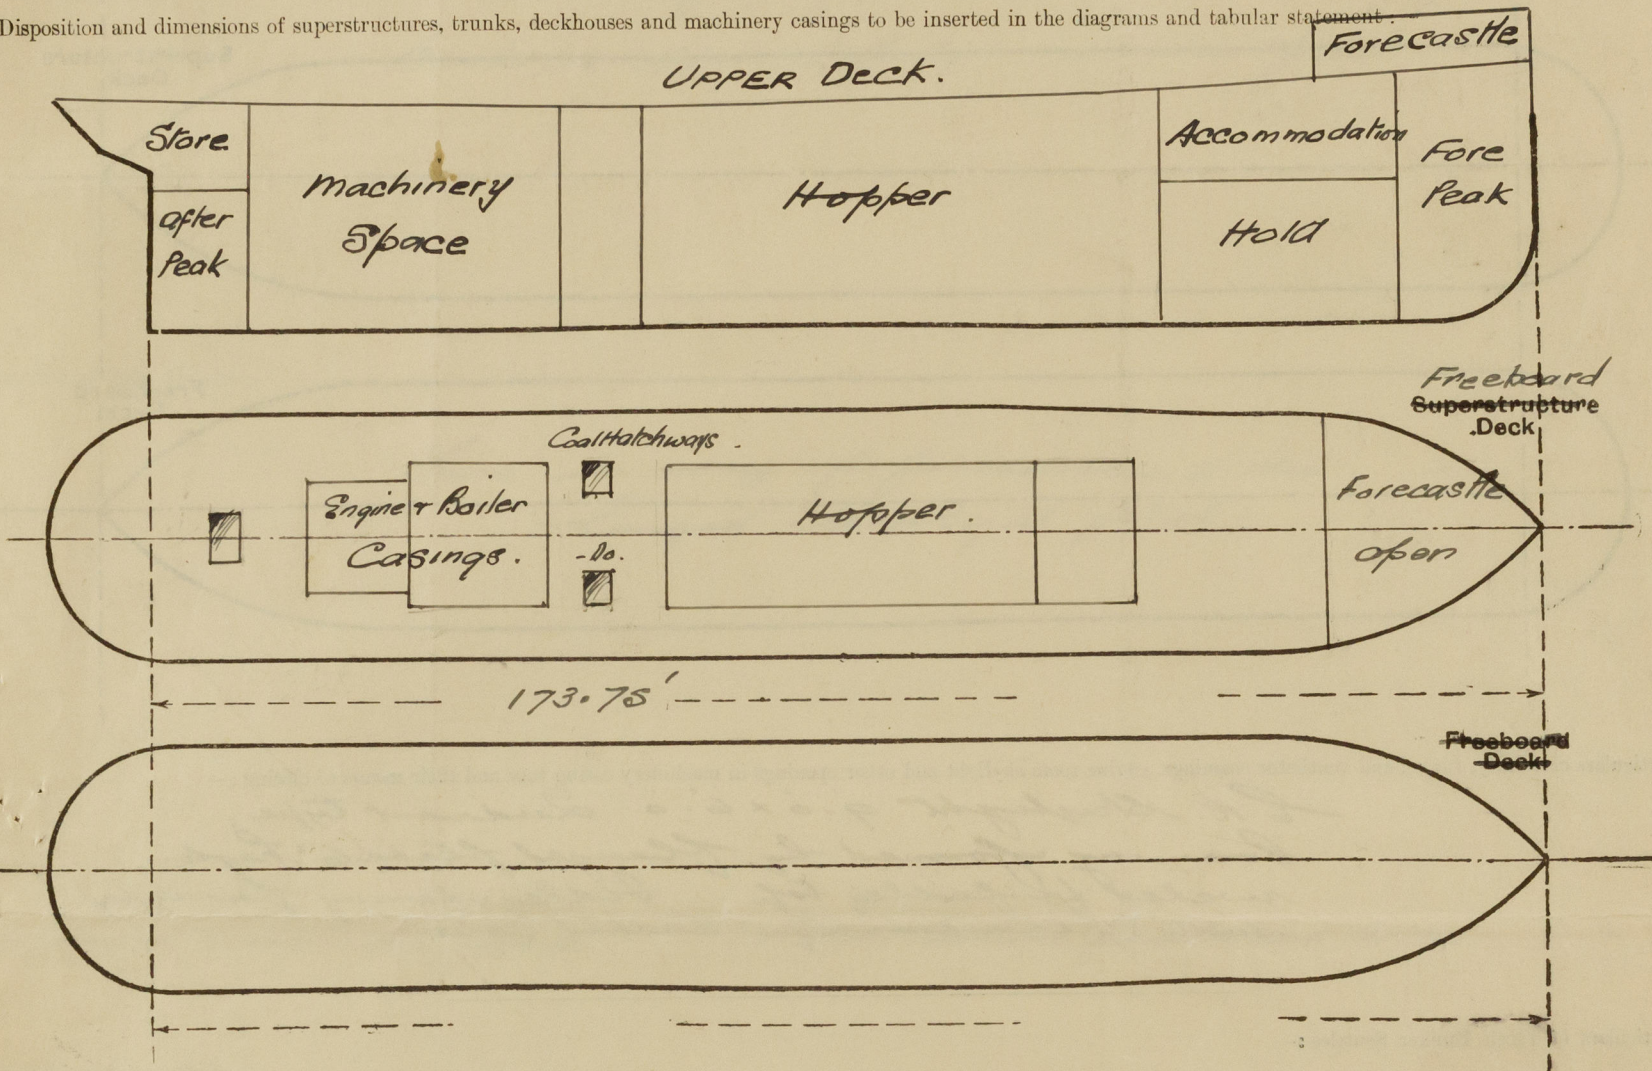 Disposition and dimensions of superstructures, trunks, deckhouses and machinery casings to be inserted in the diagrams and tabular statement :—
Forecastle
UPPER DECK.
Store
Accommodation
Fore
Peak
Machinery
Space
Hopper
after
Peak
Hold
Freeboard
Superstructure
Deck
Coal Hatchways.
Engine & Boiler
Casings.
Hopper.
Forecastle
open
-Do.
173.75'
Freeboard
Deck